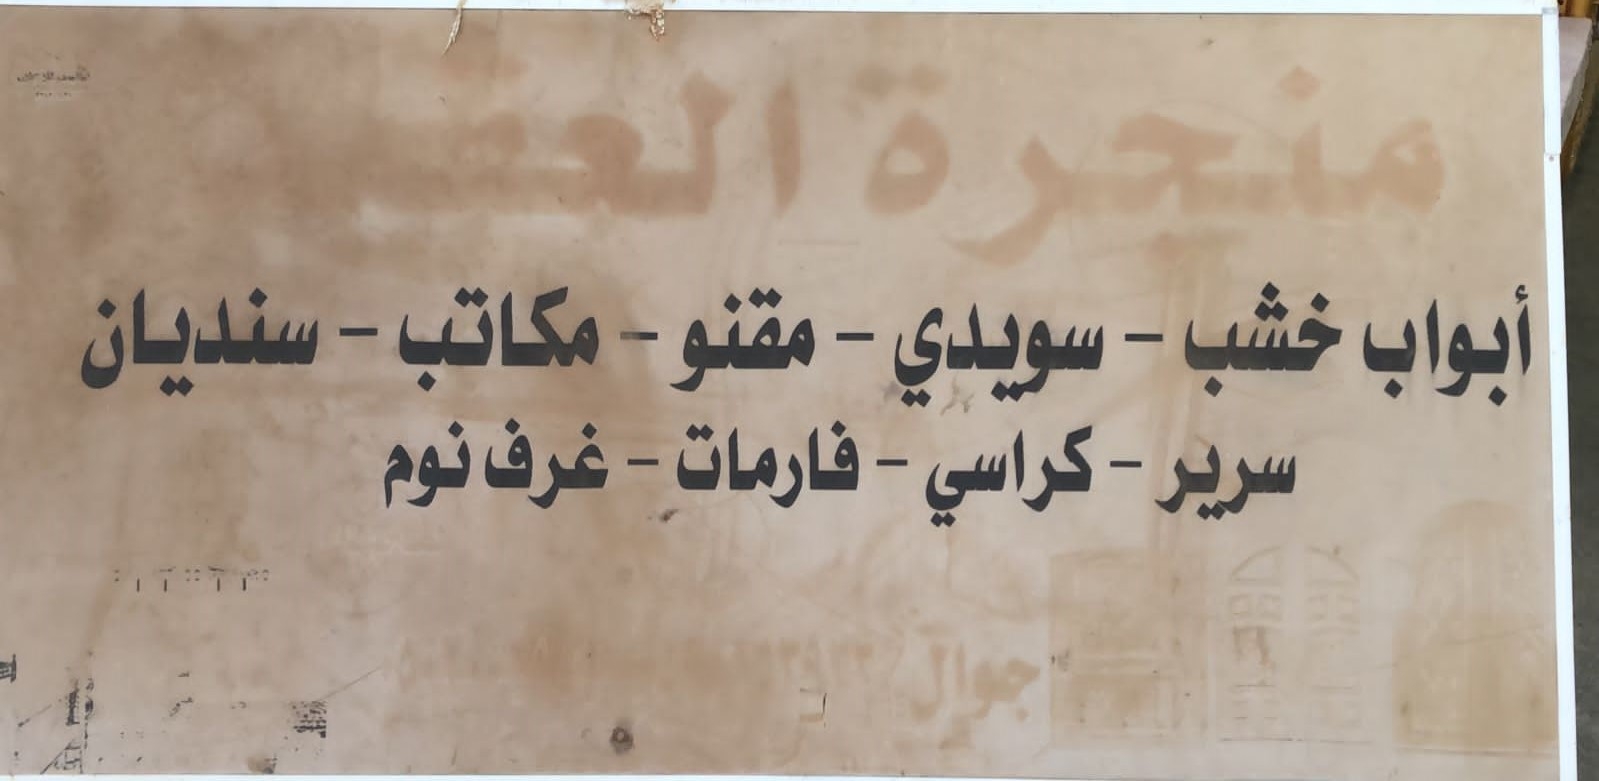 منجرة
أبواب خشب - سويدي - مقنو - مكاتب - سنديان
سرير - كراسي - فارمات - غرف نوم
جوال